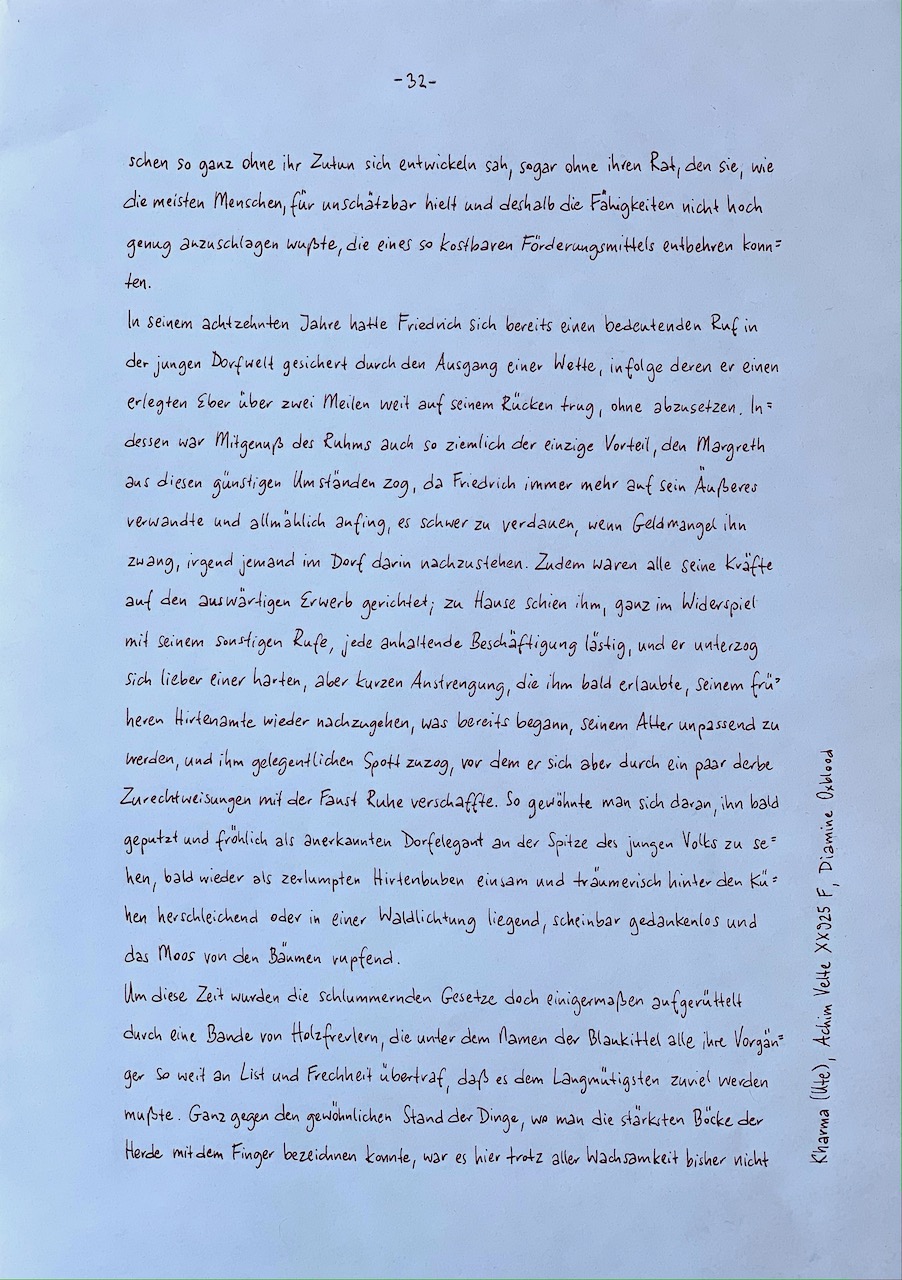 -32-
schen so ganz ohne ihr Zutun sich entwickeln sah, sogar ohne ihren Rat, den sie, wie
die meisten Menschen, für unschätzbar hielt und deshalb die Fähigkeiten nicht hoch
genug anzuschlagen wußte, die eines so kostbaren Förderungsmittels entbehren konn=
ten.
In seinem achtzehnten Jahre hatte Friedrich sich bereits einen bedeutenden Ruf in
der jungen Dorfwelt gesichert durch den Ausgang einer Wette, infolge deren er einen
erlegten Eber über zwei Meilen weit auf seinem Rücken trug, ohne abzusetzen. In=
dessen war Mitgenuß des Ruhms auch so ziemlich der einzige Vorteil, den Margreth
aus diesen günstigen Umständen zog, da Friedrich immer mehr auf sein Äußeres
verwandte und allmählich anfing, es schwer zu verdauen, wenn Geldmangel ihn
zwang, irgend jemand im Dorf darin nachzustehen. Zudem waren alle seine Kräfte
auf den auswärtigen Erwerb gerichtet; zu Hause schien ihm, ganz im Widerspiel
mit seinem sonstigen Rufe, jede anhaltende Beschäftigung lästig, und er unterzog
sich lieber einer harten, aber kurzen Anstrengung, die ihm bald erlaubte, seinem frü=
heren Hirtenamte wieder nachzugehen, was bereits begann, seinem Alter unpassend zu
werden, und ihm gelegentlichen Spott zuzog, vor dem er sich aber durch ein paar derbe
Zurechtweisungen mit der Faust Ruhe verschaffte. So gewöhnte man sich daran, ihn bald
geputzt und fröhlich als anerkannten Dorfelegant an der Spitze des jungen Volks zu se=
hen, bald wieder als zerlumpten Hirtenbuben einsam und träumerisch hinter den Kü=
hen herschleichend oder in einer Waldlichtung liegend, scheinbar gedankenlos und
das Moos von den Bäumen rupfend.
Um diese Zeit wurden die schlummernden Gesetze doch einigermaßen aufgerüttelt
durch eine Bande von Holzfrevlern, die unter dem Namen der Blaukittel alle ihre Vorgän=
ger so weit an List und Frechheit übertraf, daß es dem Langmütigsten zuviel werden
mußte. Ganz gegen den gewöhnlichen Stand der Dinge, wo man die stärksten Böcke der
Herde mit dem Finger bezeichnen konnte, war es hier trotz aller Wachsamkeit bisher nicht
Kharma (Ute), Achim Velte XX925 F, Diamine Oxblood